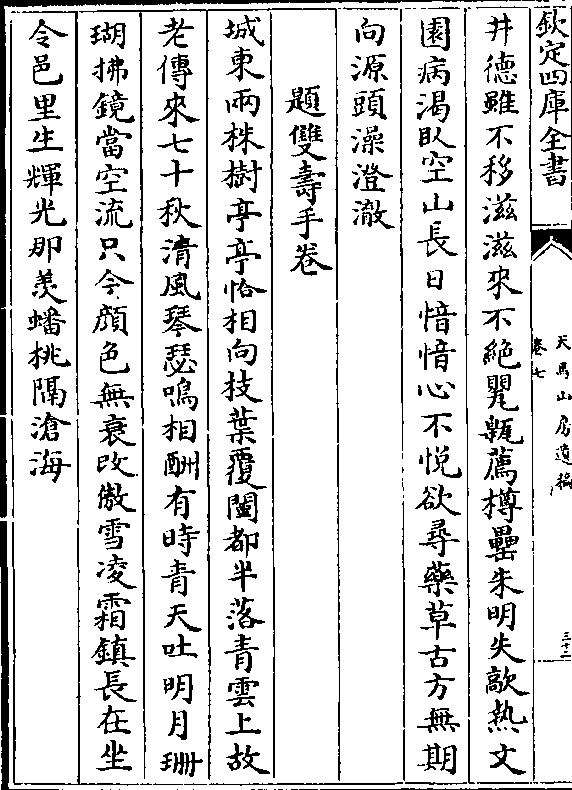 欽定四庫全書
天馬山房遺稿
卷七
三十二
井德雖不移滋滋來不絶羃甒薦樽罍朱明失歊熱文
園病渴臥空山長日愔愔心不悦欲尋藥草古方無期
向源頭澡澄澈
題雙壽手卷
城東兩株樹亭亭恰相向枝葉覆闔都半落青雲上故
老傳來七十秋清風琴瑟鳴相酬有時青天吐明月珊
瑚拂鏡當空流只今顔色無衰改傲雪凌霜鎮長在坐
令邑里生輝光那羨蟠桃隔滄海